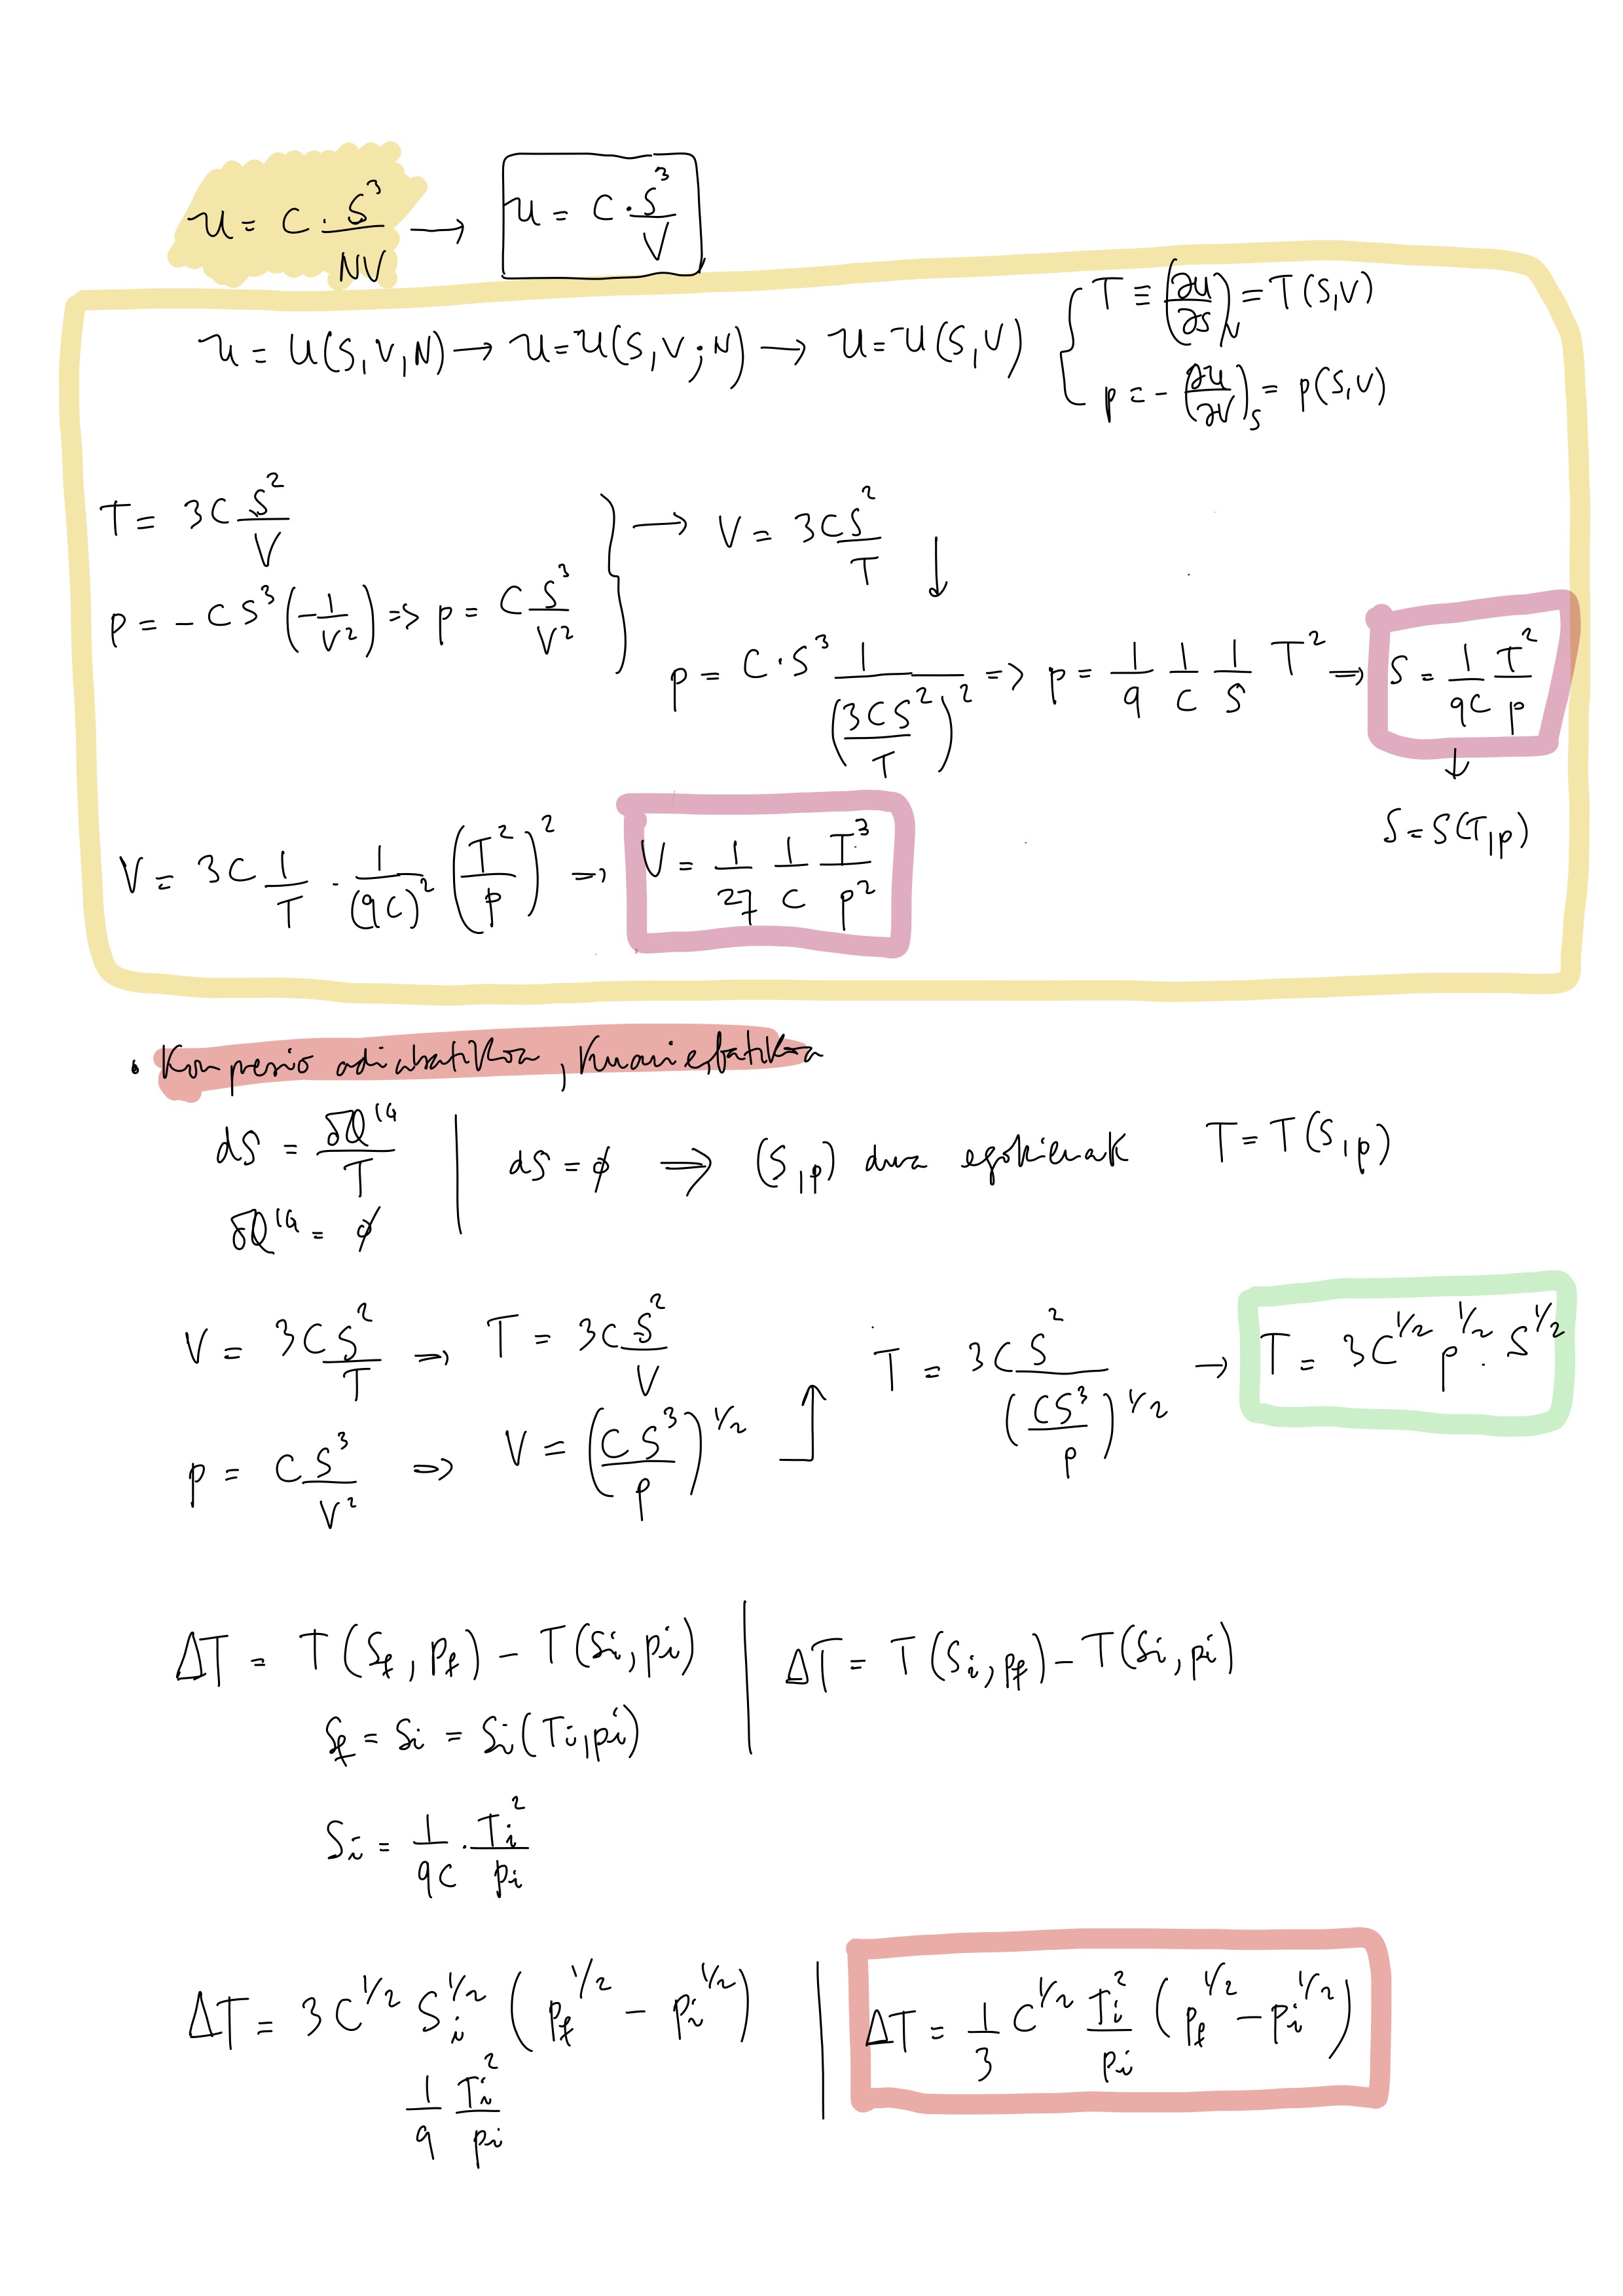 U = C · S³/NV → U = C · S³/V
U = U(S,V,N) → U = U(S,V;N) → U = U(S,V) { T ≡ (∂U/∂S)_V = T(S,V)
p = -(∂U/∂V)_S = p(S,V)
T = 3C S²/V } → V = 3C S²/T ↓
p = -CS³(-1/V²) => p = C S³/V²
p = C·S³ 1/(3CS²/T)² => p = 1/9 1/C 1/S T² => S = 1/9C T²/p
↓
S = S(T,p)
V = 3C 1/T · 1/(9C)² (T²/p)² => V = 1/27 1/C T³/p²
• Konpresio adiabatikoa, kuasiestatikoa
dS = δQ^IG/T | dS = ∅ => (S,p) dira egokienak T = T(S,p)
δQ^IG = ∅
V = 3C S²/T => T = 3C S²/V
p = C S³/V² => V = (CS³/p)^1/2 ↑ T = 3CS²/(CS³/p)^1/2 → T = 3C^1/2 p^1/2 · S^1/2
ΔT = T(Sf, pf) - T(Si, pi) | ΔT = T(Si, pf) - T(Si, pi)
Sf = Si = Si(Ti, pi)
Si = 1/9C · Ti²/pi
ΔT = 3C^1/2 Si^1/2 (pf^1/2 - pi^1/2) | ΔT = 1/3 C^1/2 Ti²/pi (pf^1/2 - pi^1/2)
1/9 Ti²/pi